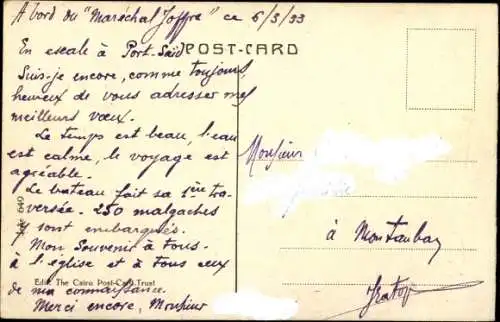 A bord du "Maréchal Joffre" ce 6/3/33
En escale à Port-Saïd
POST-CARD
Suis-je encore, comme toujours,
heureux de vous adresser mes
meilleurs vœux.
Le temps est beau, l'eau
est calme, le voyage est
agréable.
Le bateau fait sa 1ère tra-
versée. 250 malgaches
y sont embarqués.
Mon Souvenir à tous.
à l'église et à tous ceux
Edit. The Cairo Post-Card Trust
de ma connaissance.
Merci encore, Monsieur
640
Monsieur
à Montauban